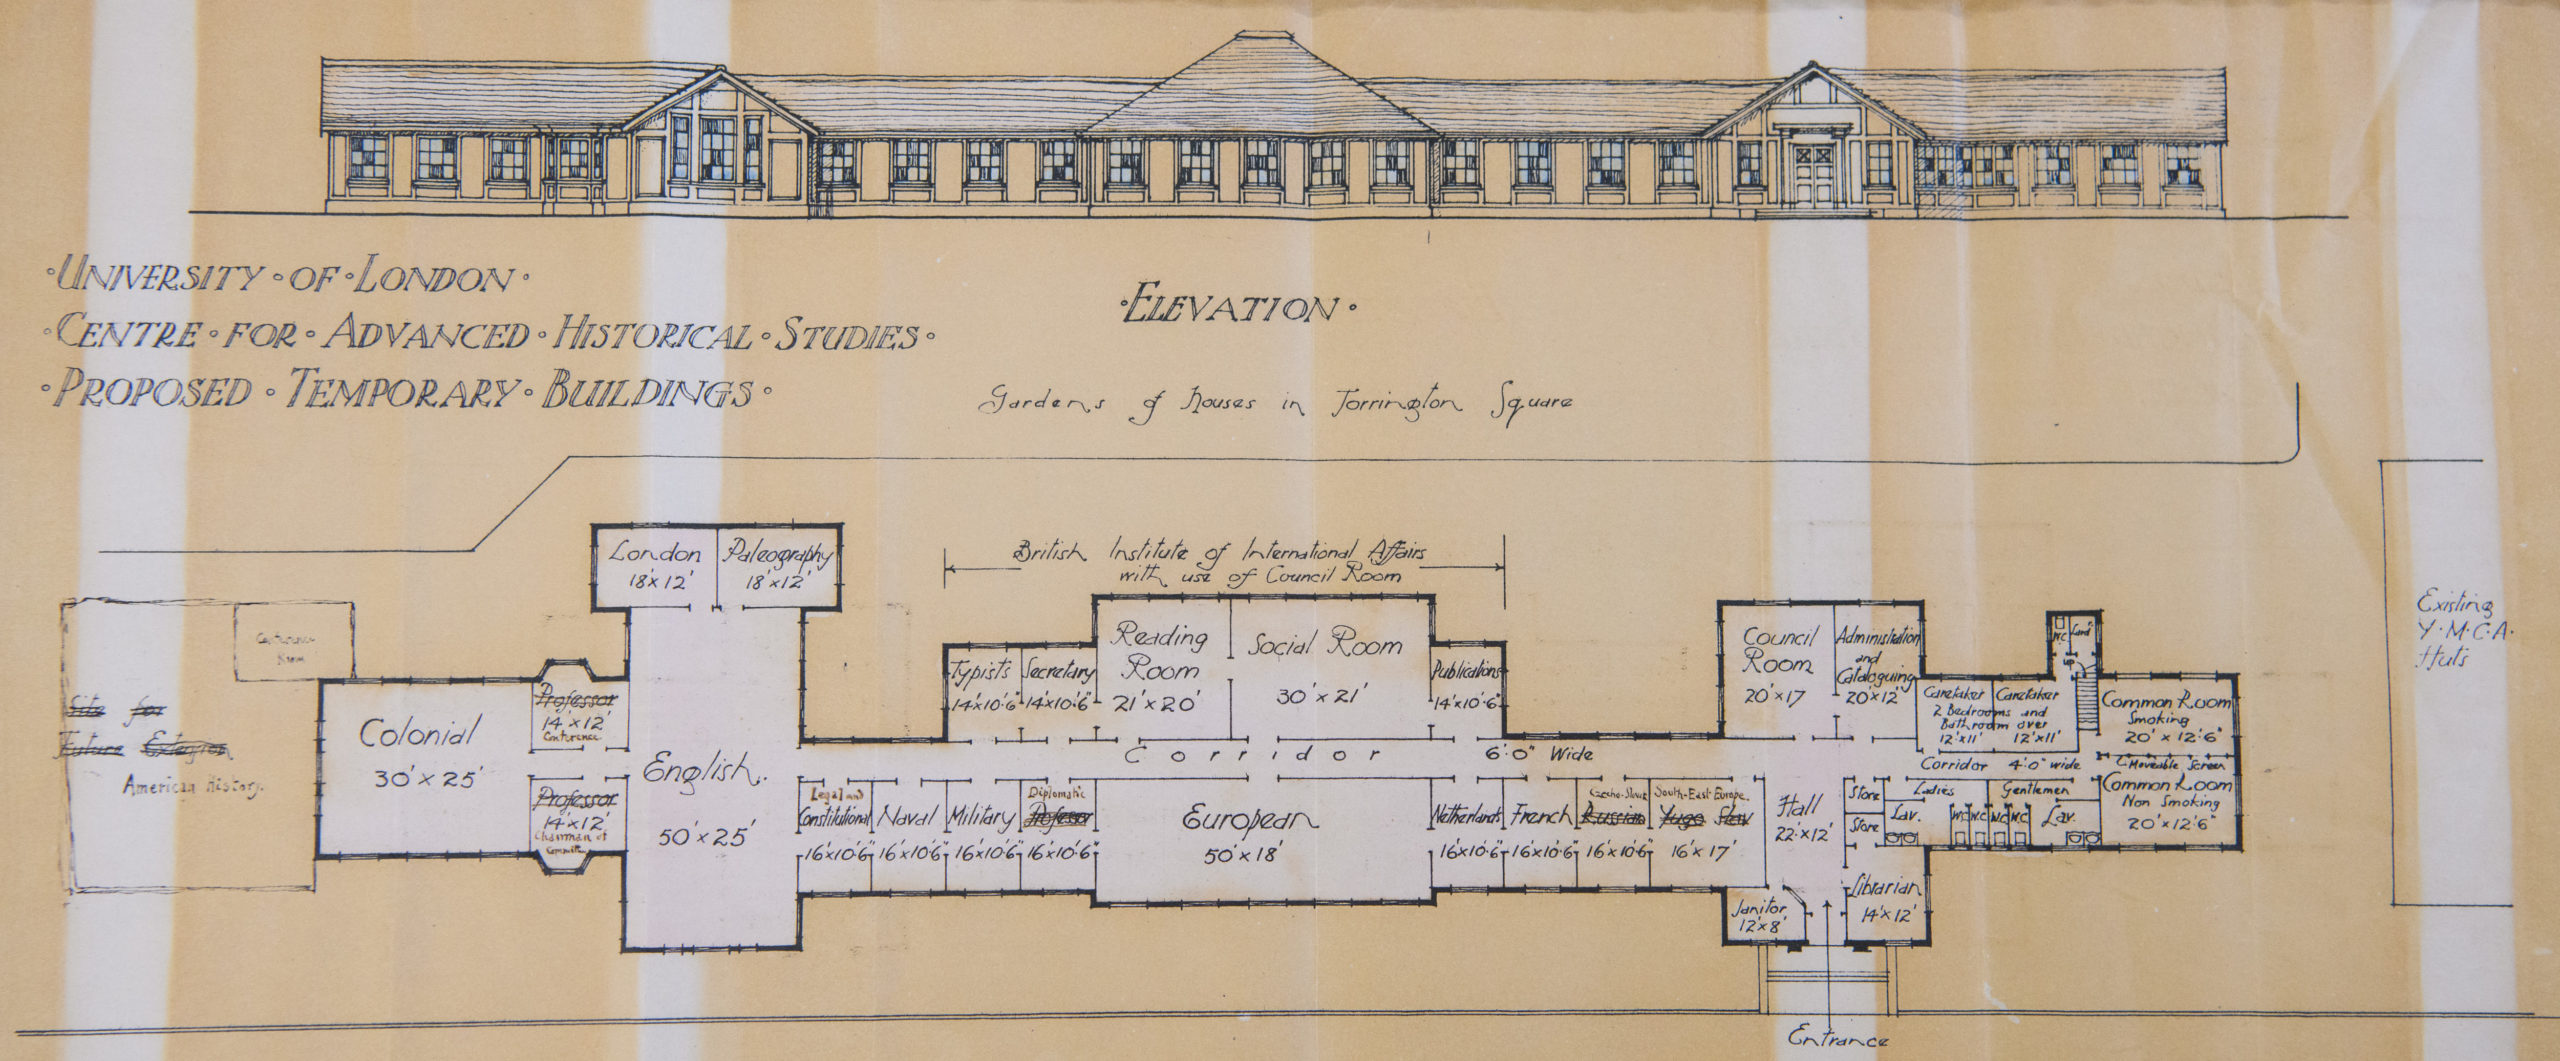 ·UNIVERSITY·OF·LONDON·
·CENTRE·FOR·ADVANCED·HISTORICAL·STUDIES·
·PROPOSED·TEMPORARY·BUILDINGS·
·ELEVATION·
Gardens of houses in Torrington Square
British Institute of International Affairs
with use of Council Room
London
18'x12'
Paleography
18'x12'
Conference
Room
Site for
Future Extension
American History.
Colonial
30' x 25'
Professor
14'x12'
Conference
Professor
14'x12'
Chairman of
Committee
English.
50'x25'
Typists
14'x10'·6"
Secretary
14'x10'·6"
Reading
Room
21' x 20'
Social Room
30' x 21'
Publications
14'x10'·6"
Corridor 6'·0" Wide
Legal and
Constitutional
16'x10'·6"
Naval
16'x10'·6"
Military
16'x10'·6"
Diplomatic
Professor
16'x10'·6"
European
50'x18'
Netherlands
16'x10'·6"
French
16'x10'·6"
Czecho-Slovak
Russian
16'x10'·6"
South-East Europe
Yugo Slav
16'x17'
Council
Room
20'x17
Administration
and
Cataloguing
20'x12'
Caretaker Caretaker
2 Bedrooms and
Bathroom over
12'x11' 12'x11'
W.C.
Lard'
up
Common Room
Smoking
20' x 12'·6"
Moveable Screen
Common Room
Non Smoking
20'x12'·6"
Corridor 4'·0" wide
Ladies
Gentlemen
Store
Store
Lav.
W.C W.C W.C W.C
Lav.
Hall
22'x12'
Janitor
12'x8'
Librarian
14'x12'
Entrance
Existing
Y·M·C·A·
Huts